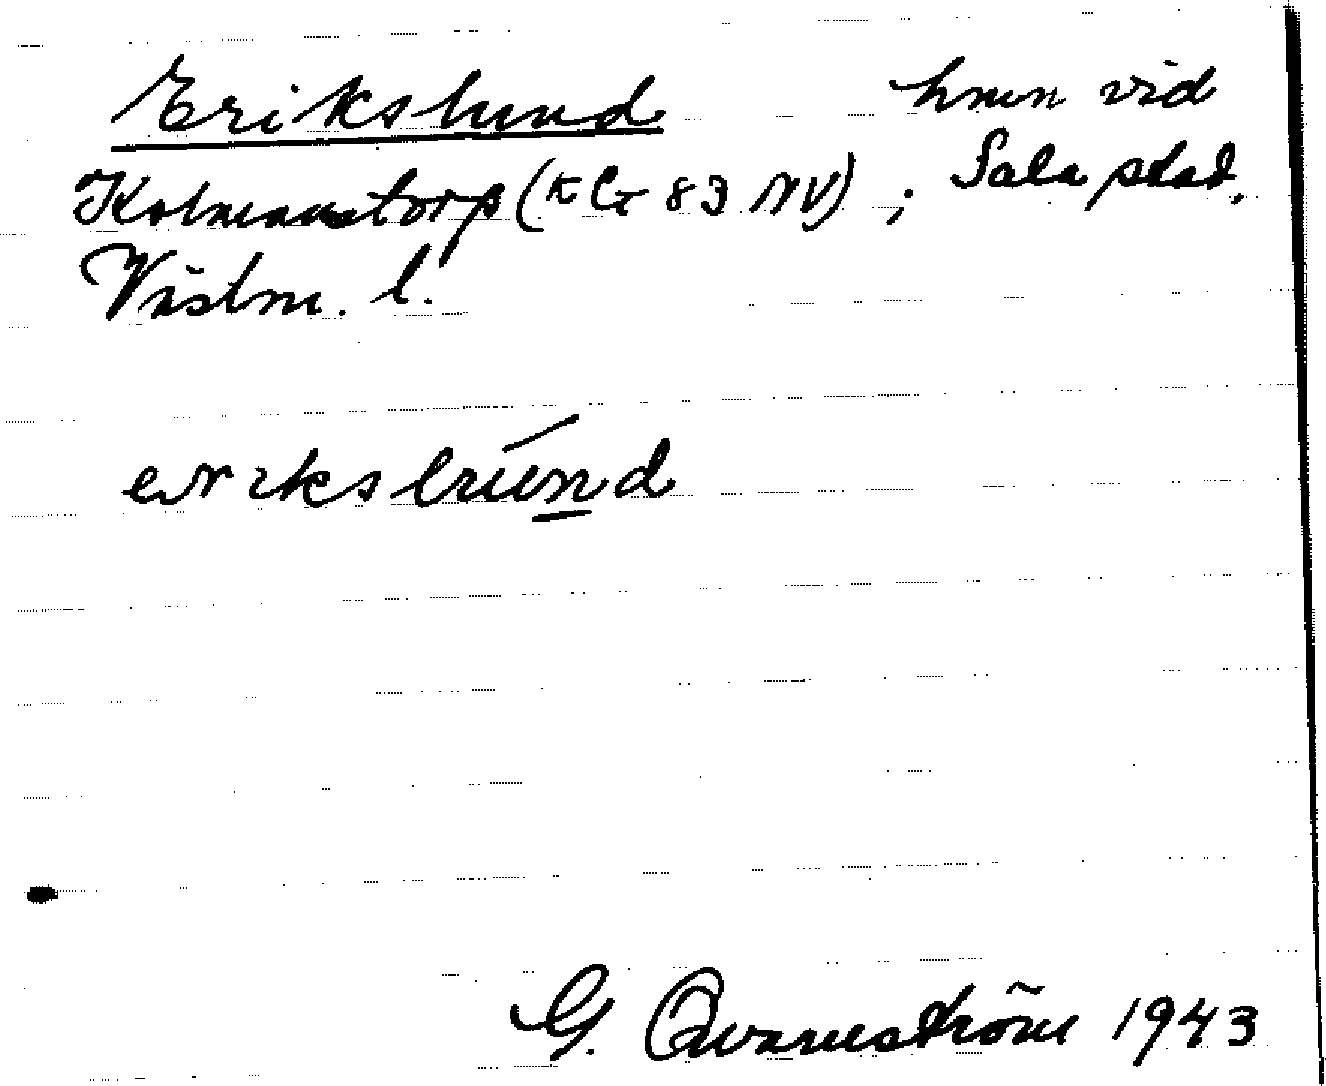 Erikslund hmn vid
Kolmanstorp (K G 83 NV) ; Sala stad.
Västm. l.
erikslund
G. Qvarnström 1943